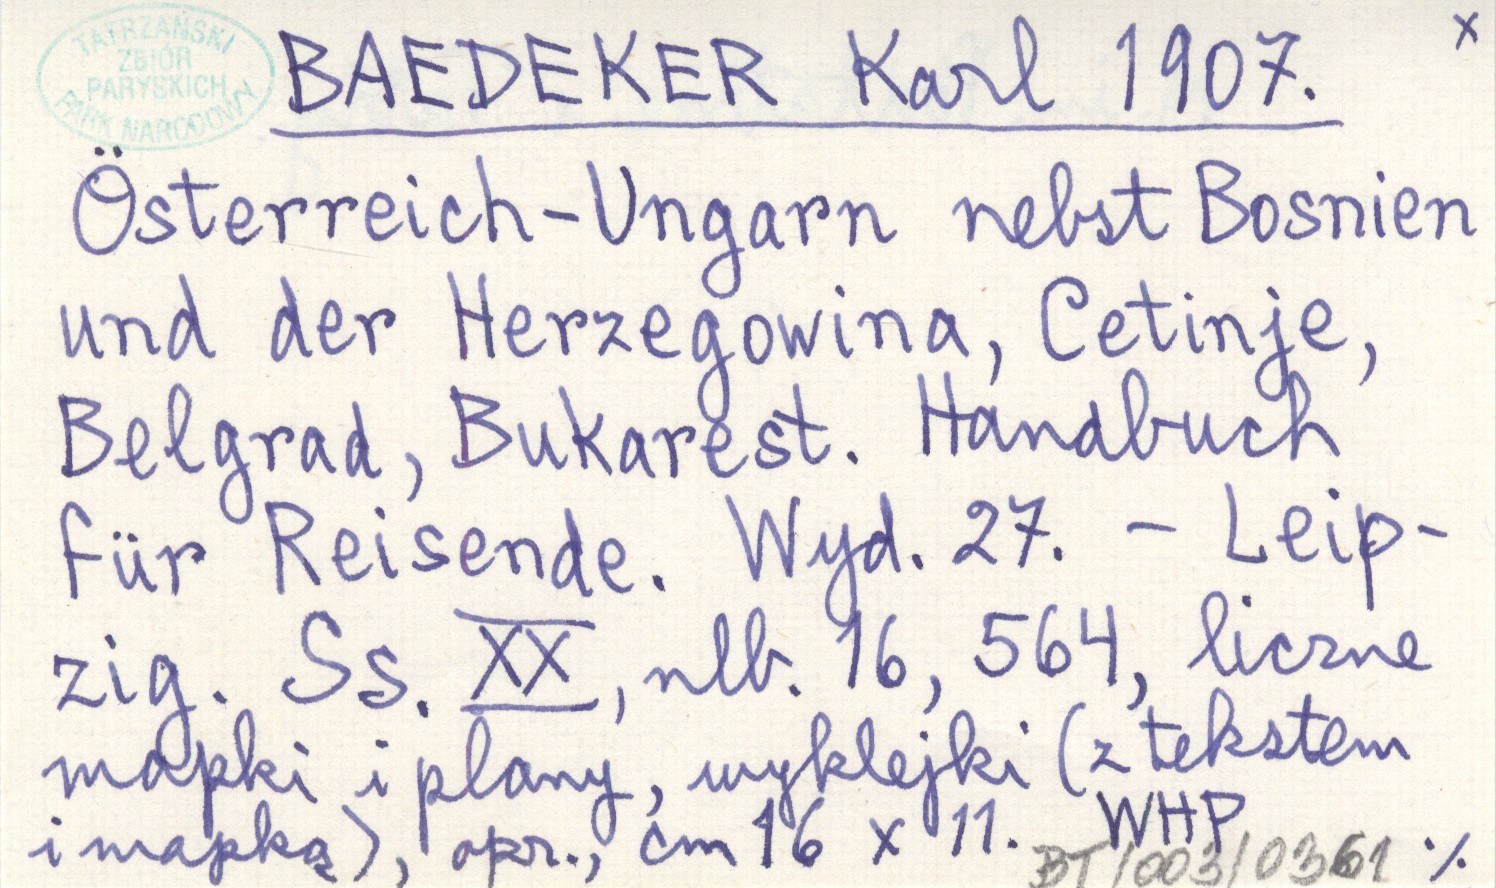 TATRZAŃSKI
ZBIÓR
PARYSKICH
PARK NARODOWY
x
BAEDEKER Karl 1907.
Österreich-Ungarn nebst Bosnien
und der Herzegowina, Cetinje,
Belgrad, Bukarest. Handbuch
für Reisende. Wyd. 27. – Leip-
zig. Ss. XX, nlb. 16, 564, liczne
mapki i plany, wyklejki (z tekstem
i mapką), opr., cm 16 x 11. WHP
BT/003/0361 ./.